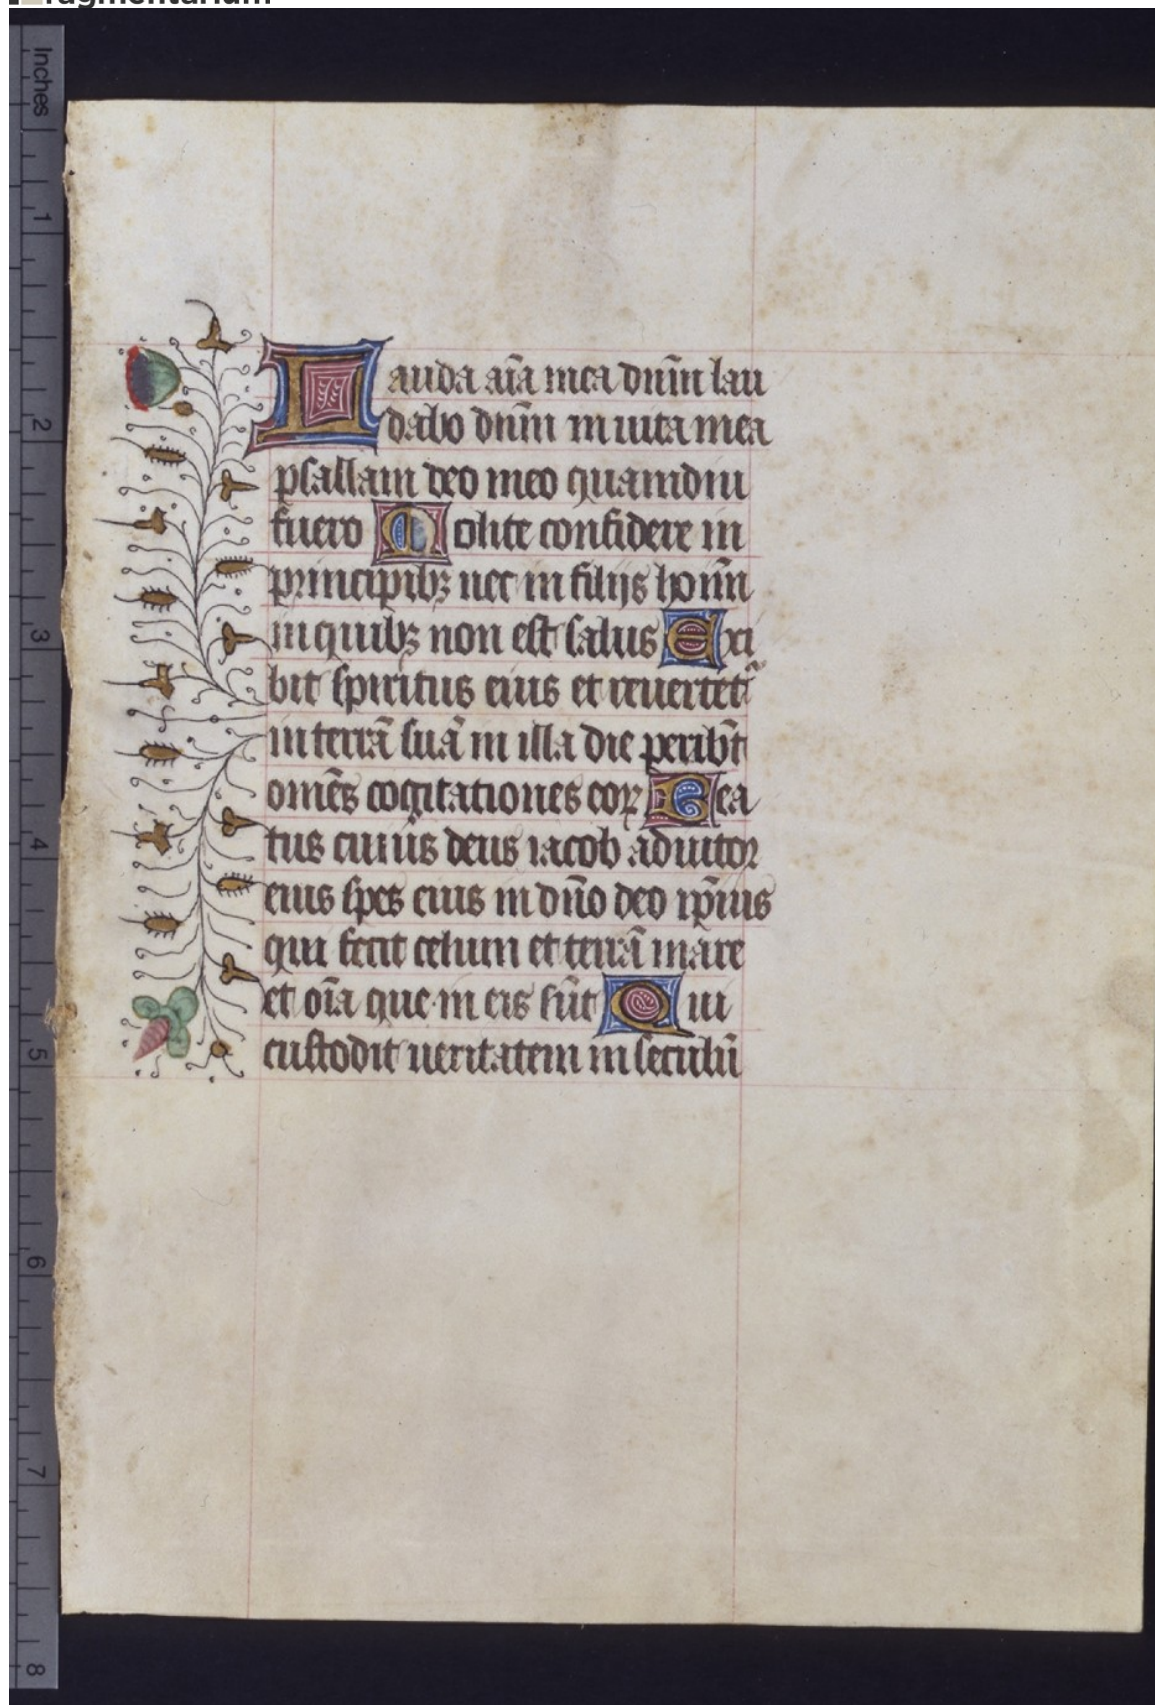 fragmentarium
Inches
1
2
3
4
5
6
7
8
Lauda aīa mea dn̄m lau
dabo dn̄m in uita mea
psallam deo meo quamdiu
fuero Nolite confidere in
principibꝫ nec in filijs hoīm
in quibꝫ non est salus Exi
bit spiritus eius et reuertet᷑
in terrā suā in illa die peribt̄
om̄es cogitationes eoꝝ Bea
tus cuius deus iacob adiutor
eius spes eius in dn̄o deo ip̄ius
qui fecit celum et terrā mare
et oīa que in eis sūt Qui
custodit ueritatem in seculū